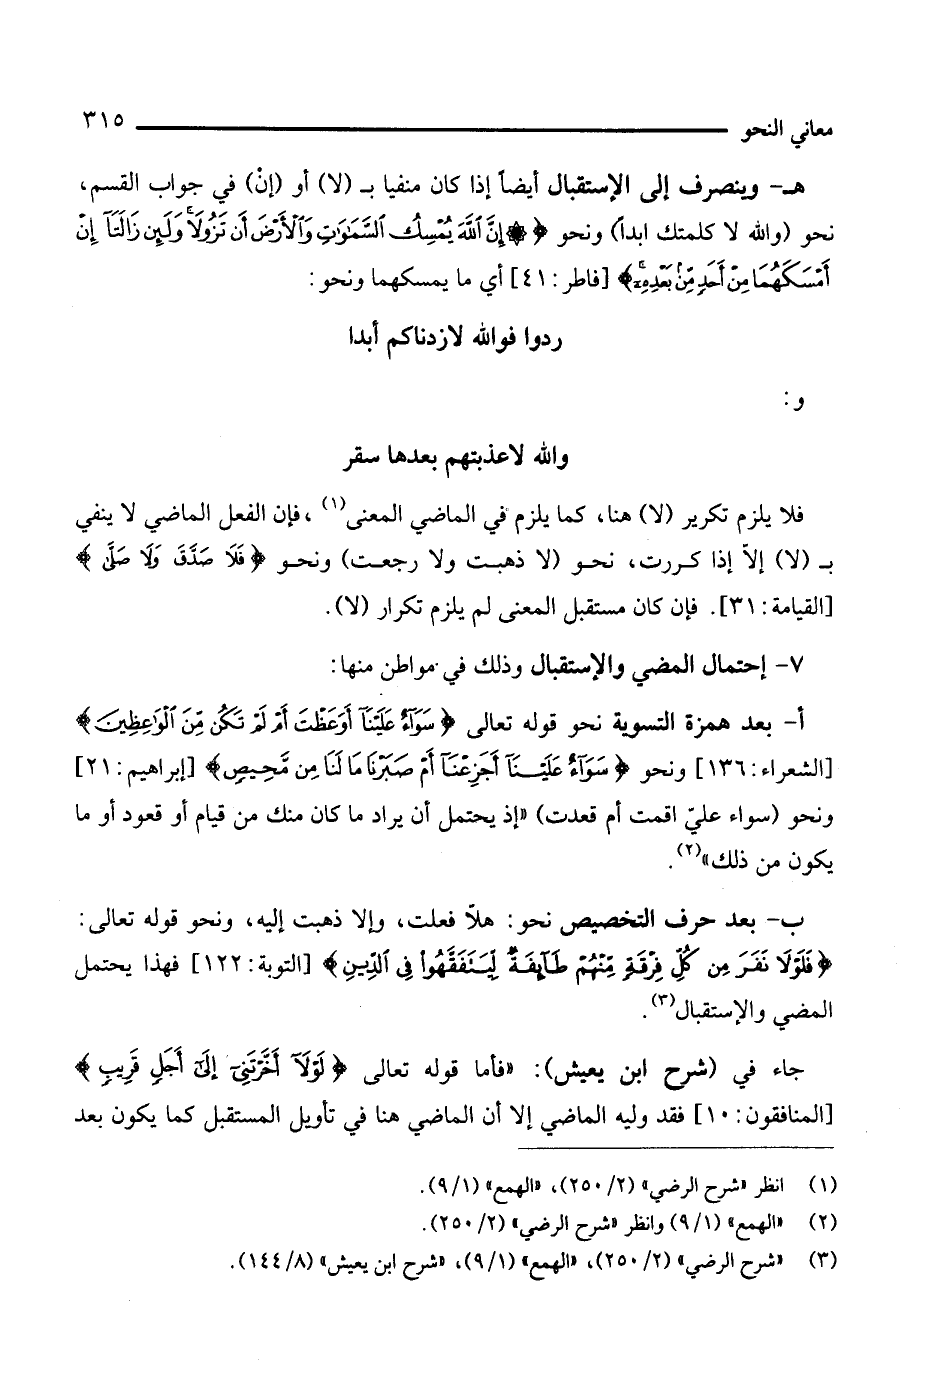 معاني النحو ٣١٥
هـ- وينصرف إلى الإستقبال أيضاً إذا كان منفيا بـ (لا) أو (إنْ) في جواب القسم،
نحو (والله لا كلمتك ابداً) ونحو ﴿ ۞ إِنَّ ٱللَّهَ يُمْسِكُ ٱلسَّمَٰوَٰتِ وَٱلْأَرْضَ أَن تَزُولَا ۚ وَلَئِن زَالَتَآ إِنْ
أَمْسَكَهُمَا مِنْ أَحَدٍ مِّنۢ بَعْدِهِۦٓ ۚ﴾ [فاطر: ٤١] أي ما يمسكهما ونحو:
ردوا فوالله لازدناكم أبدا
و:
والله لاعذبتهم بعدها سقر
فلا يلزم تكرير (لا) هنا، كما يلزم في الماضي المعنى(١) ،فإن الفعل الماضي لا ينفي
بـ (لا) إلاّ إذا كـررت، نحـو (لا ذهبـت ولا رجعـت) ونحـو ﴿ فَلَا صَدَّقَ وَلَا صَلَّىٰ ﴾
[القيامة: ٣١]. فإن كان مستقبل المعنى لم يلزم تكرار (لا).
٧- إحتمال المضي والإستقبال وذلك في مواطن منها:
أ- بعد همزة التسوية نحو قوله تعالى ﴿ سَوَآءٌ عَلَيْنَآ أَوَعَظْتَ أَمْ لَمْ تَكُن مِّنَ ٱلْوَٰعِظِينَ ﴾
[الشعراء: ١٣٦] ونحو ﴿ سَوَآءٌ عَلَيْنَآ أَجَزِعْنَآ أَمْ صَبَرْنَا مَا لَنَا مِن مَّحِيصٍ ﴾ [إبراهيم: ٢١]
ونحو (سواء عليّ اقمت أم قعدت) «إذ يحتمل أن يراد ما كان منك من قيام أو قعود أو ما
يكون من ذلك»(٢).
ب- بعد حرف التخصيص نحو: هلاّ فعلت، وإلا ذهبت إليه، ونحو قوله تعالى:
﴿ فَلَوْلَا نَفَرَ مِن كُلِّ فِرْقَةٍ مِّنْهُمْ طَآئِفَةٌ لِّيَتَفَقَّهُوا۟ فِى ٱلدِّينِ ﴾ [التوبة: ١٢٢] فهذا يحتمل
المضي والإستقبال(٣).
جاء في (شرح ابن يعيش): «فأما قوله تعالى ﴿ لَوْلَآ أَخَّرْتَنِىٓ إِلَىٰٓ أَجَلٍ قَرِيبٍ ﴾
[المنافقون: ١٠] فقد وليه الماضي إلا أن الماضي هنا في تأويل المستقبل كما يكون بعد
(١) انظر «شرح الرضي» (٢/ ٢٥٠)، «الهمع» (١/ ٩).
(٢) «الهمع» (١/ ٩) وانظر «شرح الرضي» (٢/ ٢٥٠).
(٣) «شرح الرضي» (٢/ ٢٥٠)، «الهمع» (١/ ٩)، «شرح ابن يعيش» (٨/ ١٤٤).